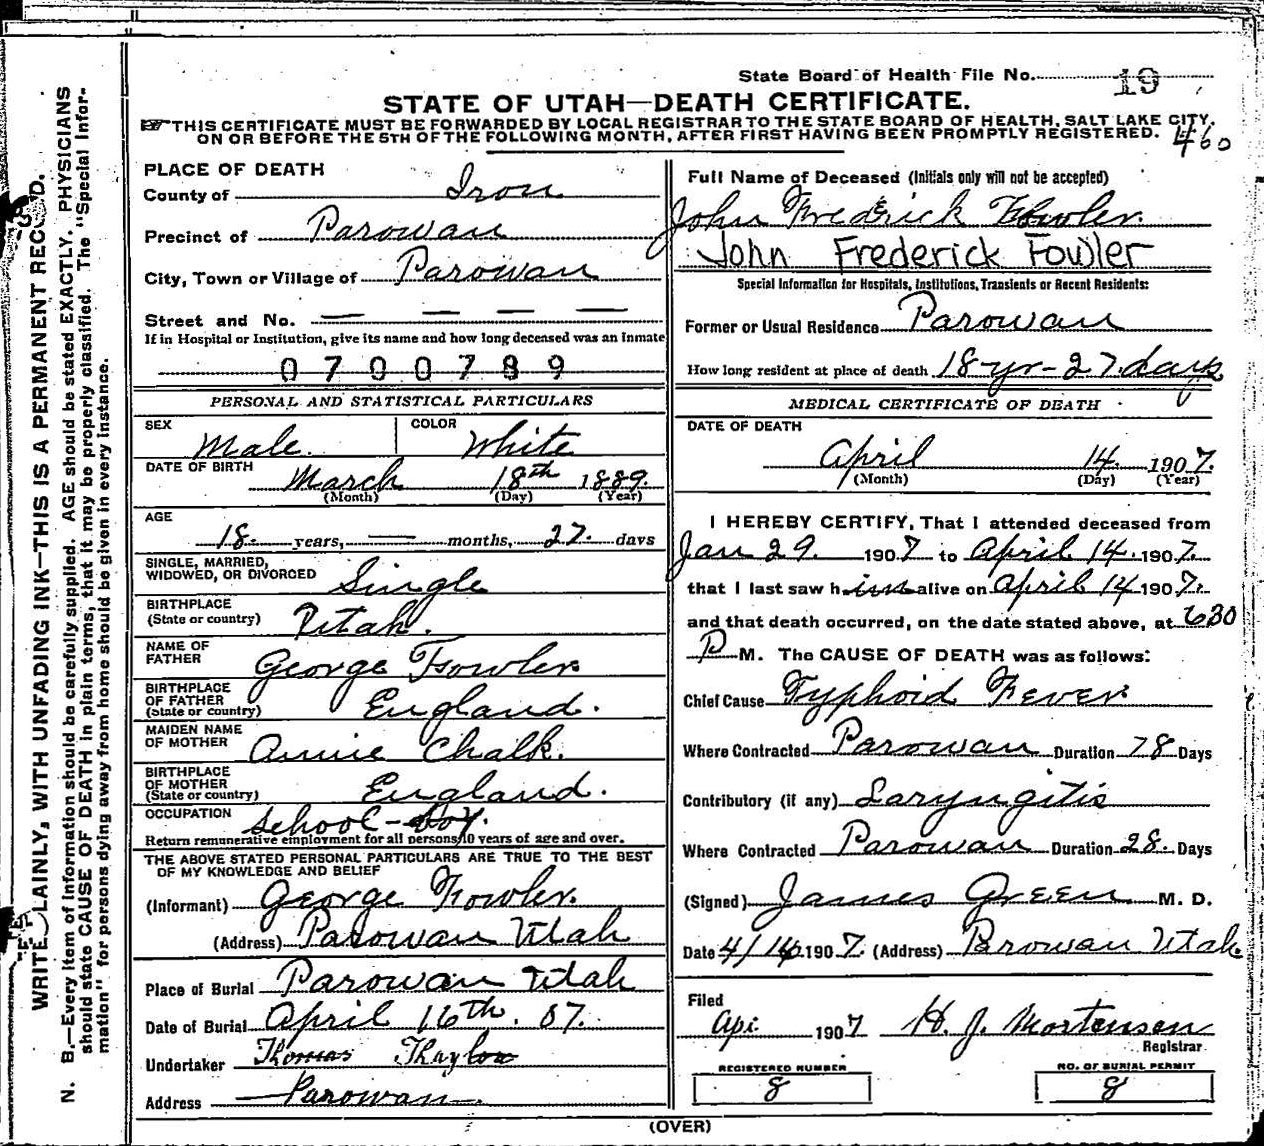 State Board of Health File No. 19
STATE OF UTAH—DEATH CERTIFICATE.
THIS CERTIFICATE MUST BE FORWARDED BY LOCAL REGISTRAR TO THE STATE BOARD OF HEALTH, SALT LAKE CITY,
ON OR BEFORE THE 5TH OF THE FOLLOWING MONTH, AFTER FIRST HAVING BEEN PROMPTLY REGISTERED.
460
WRITE PLAINLY, WITH UNFADING INK—THIS IS A PERMANENT RECORD.
N. B.—Every item of information should be carefully supplied. AGE should be stated EXACTLY. PHYSICIANS
should state CAUSE OF DEATH in plain terms, that it may be properly classified. The "Special Infor-
mation" for persons dying away from home should be given in every instance.
PLACE OF DEATH
County of Iron
Precinct of Parowan
City, Town or Village of Parowan
Street and No. — — — —
If in Hospital or Institution, give its name and how long deceased was an Inmate
0700789
PERSONAL AND STATISTICAL PARTICULARS
SEX Male. COLOR White
DATE OF BIRTH March 18th 1889.
(Month) (Day) (Year)
AGE 18. years, — months, 27. days
SINGLE, MARRIED,
WIDOWED, OR DIVORCED Single
BIRTHPLACE
(State or country) Utah.
NAME OF
FATHER George Fowler
BIRTHPLACE
OF FATHER
(State or country) England.
MAIDEN NAME
OF MOTHER Annie Chalk.
BIRTHPLACE
OF MOTHER
(State or country) England.
OCCUPATION School-boy.
Return remunerative employment for all persons 10 years of age and over.
THE ABOVE STATED PERSONAL PARTICULARS ARE TRUE TO THE BEST
OF MY KNOWLEDGE AND BELIEF
(Informant) George Fowler.
(Address) Parowan Utah
Place of Burial Parowan Utah
Date of Burial April 16th. 07.
Undertaker Thomas Thaylow
Address Parowan.
Full Name of Deceased (Initials only will not be accepted)
John Fredrick Fowler.
John Frederick Fowler
Special Information for Hospitals, Institutions, Transients or Recent Residents:
Former or Usual Residence Parowan
How long resident at place of death 18-yr-27.days
MEDICAL CERTIFICATE OF DEATH
DATE OF DEATH
April 14. 1907.
(Month) (Day) (Year)
I HEREBY CERTIFY, That I attended deceased from
Jan 29. 1907 to April 14. 1907.
that I last saw him alive on April 14 1907.
and that death occurred, on the date stated above, at 630
P M. The CAUSE OF DEATH was as follows:
Chief Cause Typhoid Fever
Where Contracted Parowan Duration 78 Days
Contributory (if any) Laryngitis
Where Contracted Parowan Duration 28. Days
(Signed) James Green M. D.
Date 4/14 1907. (Address) Parowan Utah
Filed
Apr. 1907 H. J. Mortensen
Registrar
REGISTERED NUMBER
8
NO. OF BURIAL PERMIT
8
(OVER)